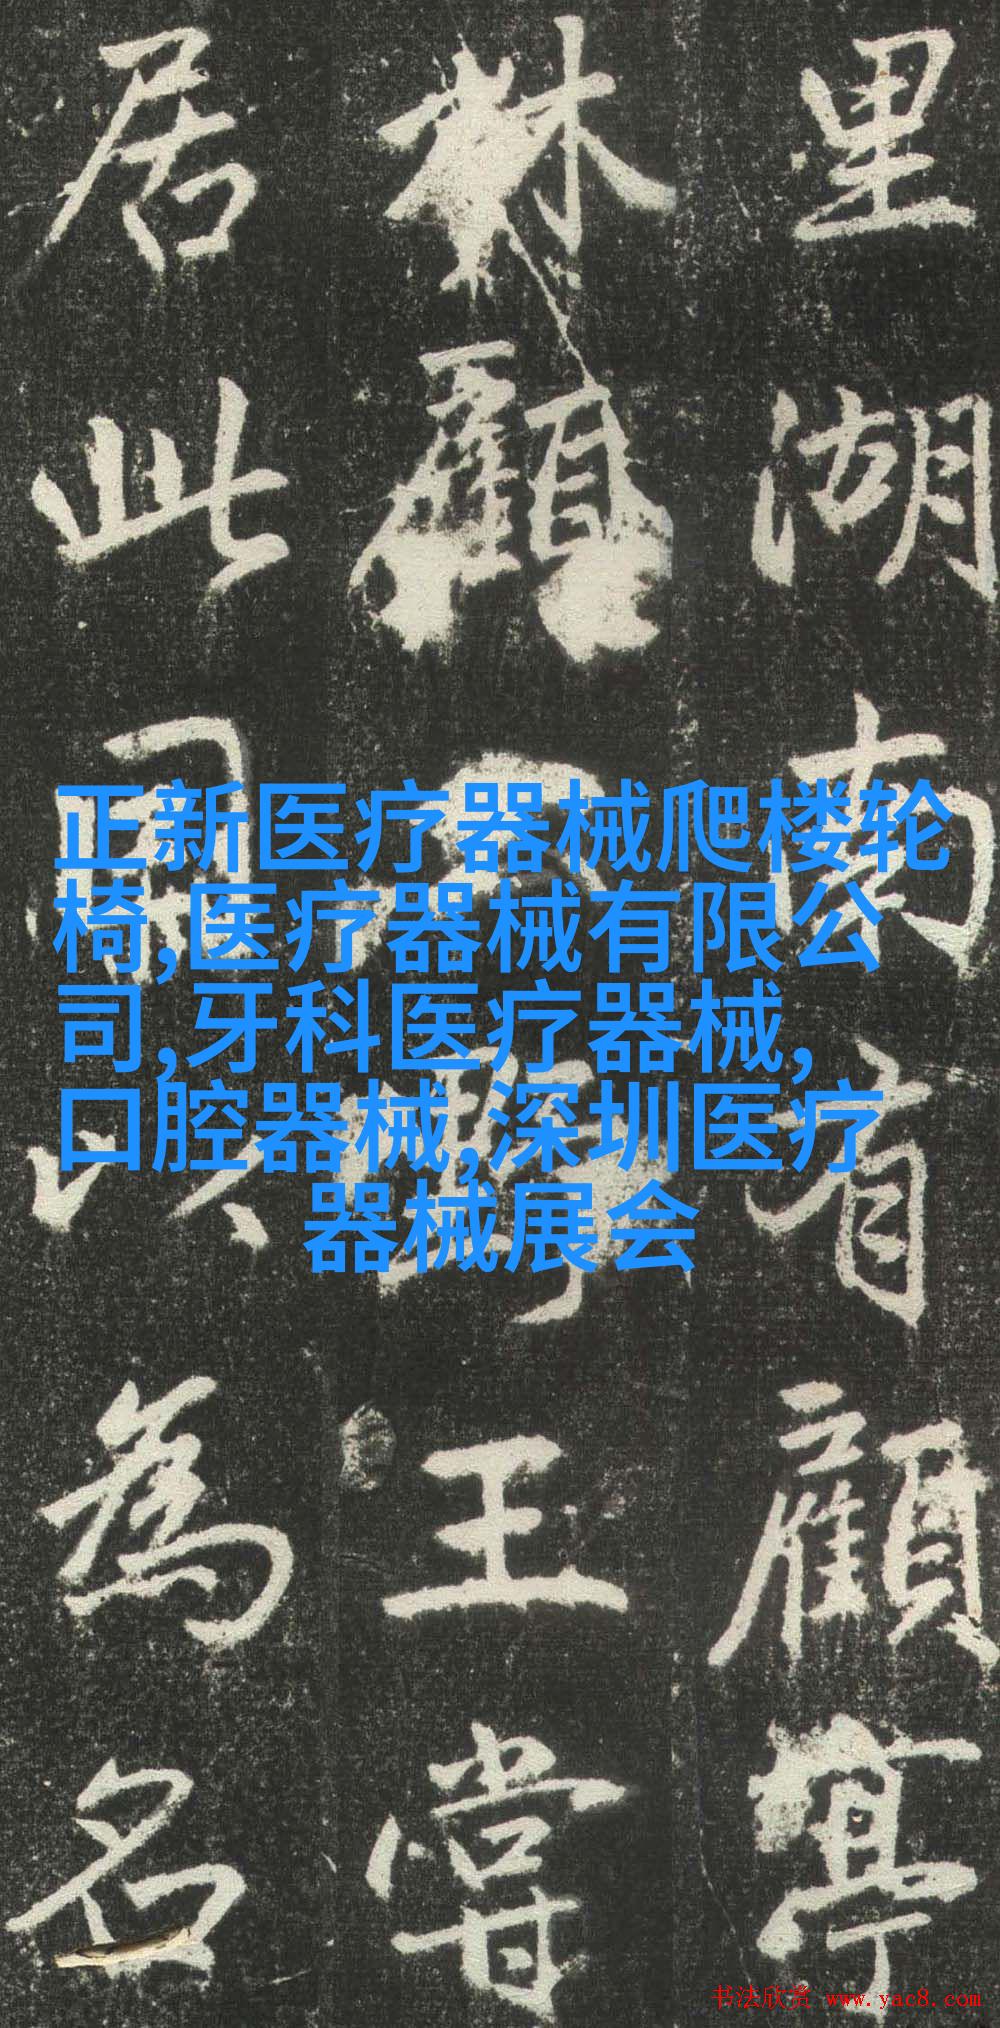 里湖南有顧亭
林顧野王嘗
居此因以為名
正新医疗器械爬楼轮
椅,医疗器械有限公
司,牙科医疗器械,
口腔器械,深圳医疗
器械展会
书法欣赏 www.yac8.com